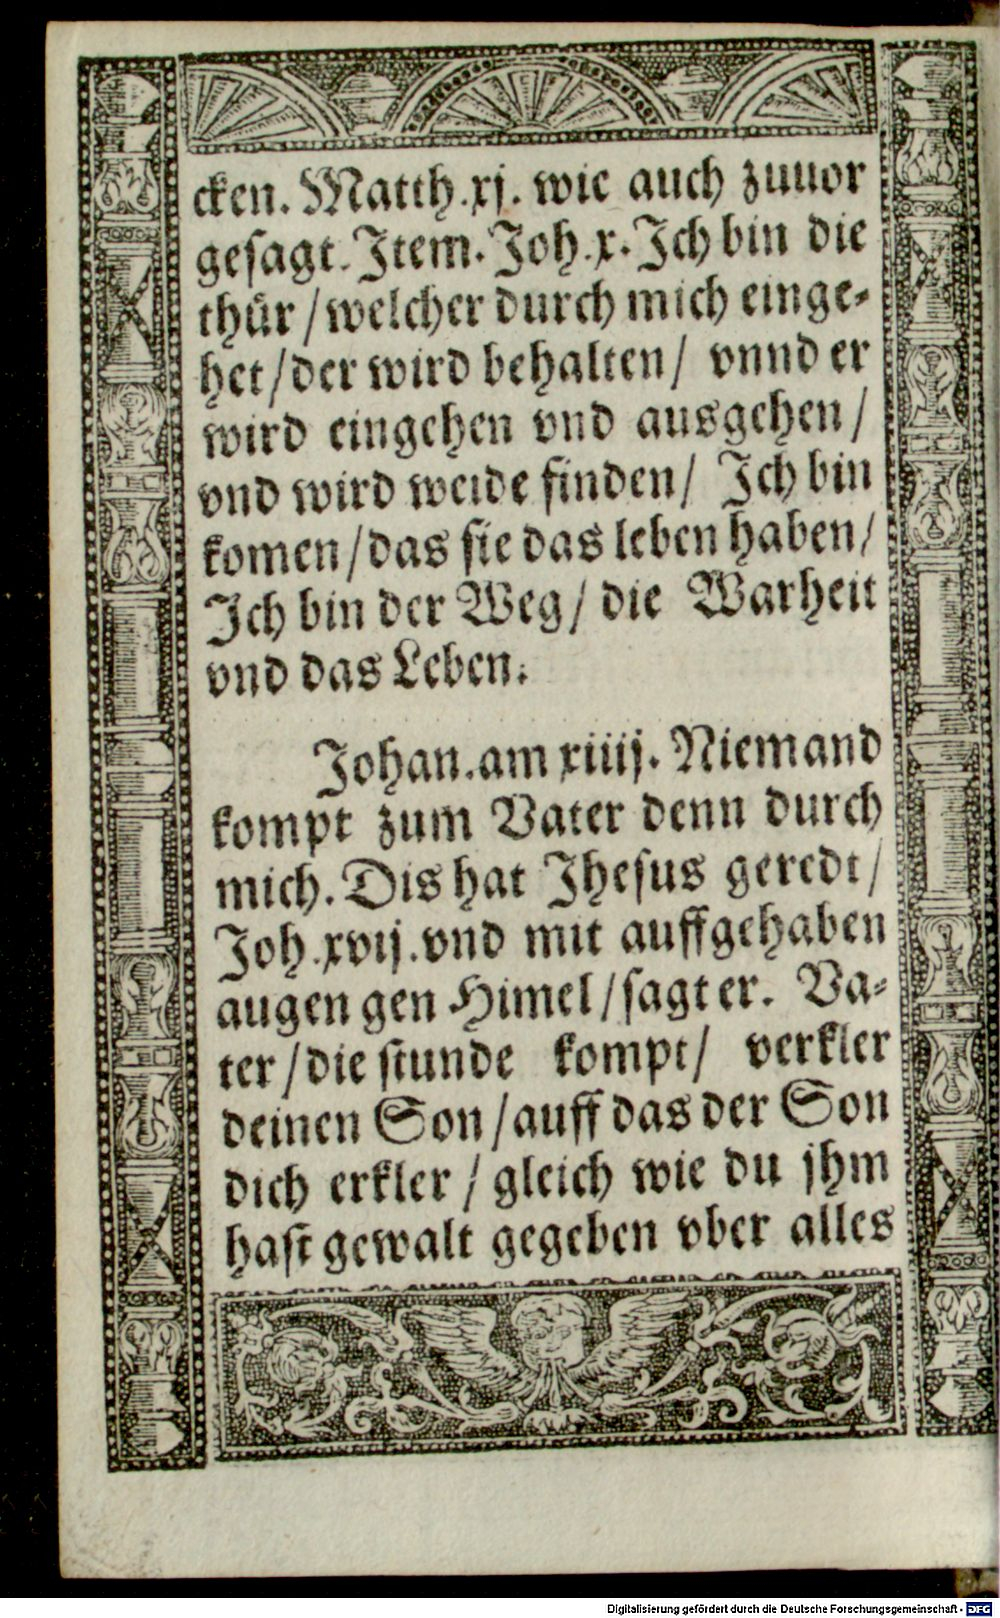 cken. Matth.xj. wie auch zuuor
gesagt. Item. Joh.x. Ich bin die
thür / welcher durch mich einge-
het / der wird behalten / vnnd er
wird eingehen vnd ausgehen /
vnd wird weide finden / Ich bin
komen / das sie das leben haben /
Ich bin der Weg / die Warheit
vnd das Leben.
Johan. am xiiij. Niemand
kompt zum Vater denn durch
mich. Dis hat Jhesus geredt /
Joh.xvij. vnd mit auffgehaben
augen gen Himel / sagt er. Va-
ter / die stunde kompt / verkler
deinen Son / auff das der Son
dich erkler / gleich wie du jhm
hast gewalt gegeben vber alles
Digitalisierung gefördert durch die Deutsche Forschungsgemeinschaft - DFG